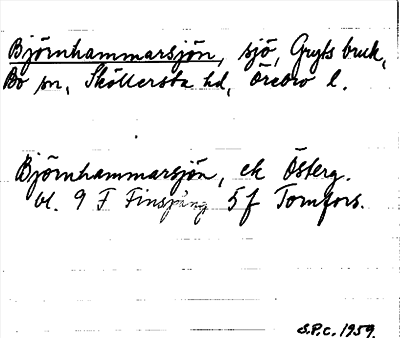 Björnhammarsjön, sjö, Gryts bruk,
Bo sn, Sköllersta hd, Örebro l.
Björnhammarsjön, ek Österg.
bl. 9 F Finspång 5 f Tomfors.
S.P.C. 1959.